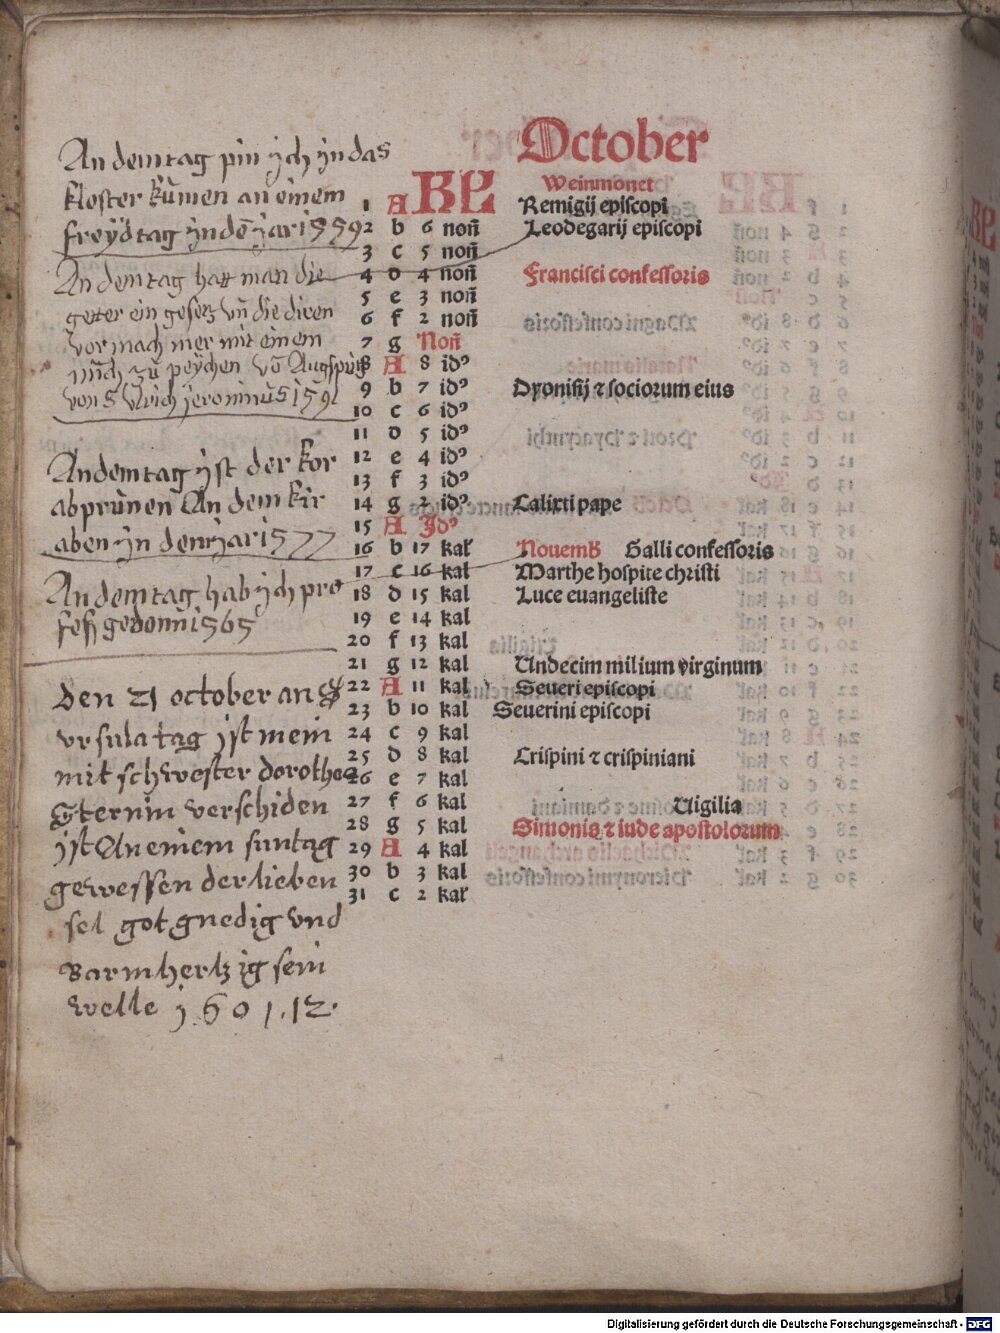 October
Weinmonet
KL
1 A Remigij episcopi
2 b 6 noñ Leodegarij episcopi
3 c 5 noñ
4 d 4 noñ Francisci confessoris
5 e 3 noñ
6 f 2 noñ
7 g Noñ
8 A 8 idꝰ
9 b 7 idꝰ Dyonisij ⁊ sociorum eius
10 c 6 idꝰ
11 d 5 idꝰ
12 e 4 idꝰ
13 f 3 idꝰ
14 g 2 idꝰ Calixti pape
15 A Idꝰ
16 b 17 kal Nouemb Galli confessoris
17 c 16 kal Marthe hospite christi
18 d 15 kal Luce euangeliste
19 e 14 kal
20 f 13 kal
21 g 12 kal Undecim milium virginum
22 A 11 kal Seueri episcopi
23 b 10 kal Seuerini episcopi
24 c 9 kal
25 d 8 kal Crispini ⁊ crispiniani
26 e 7 kal
27 f 6 kal Uigilia
28 g 5 kal Simonis ⁊ iude apostolorum
29 A 4 kal
30 b 3 kal
31 c 2 kal
An dem tag pin ÿch ÿn das
kloster kumen an einem
freÿdtag ÿn dē ÿar 1559
An dem tag hatt man die
geter ein gesetz vn̄ die diren
vor nach mer mit einem
von S Vlrich jeronimus 1591
An dem tag ÿst der kor
abprunen An dem kir
aben ÿn dem ÿar 1577
An dem tag hab ÿch pro
fess gedonn 1565
Den 21 october an S
vrsula tag ÿst mein
mit schwester dorothea
Sternin verschiden
ÿst An einem suntag
gewessen der lieben
sel got gnedig vnd
Barmhertzig sein
welle 1601. 12.
Digitalisierung gefördert durch die Deutsche Forschungsgemeinschaft - DFG